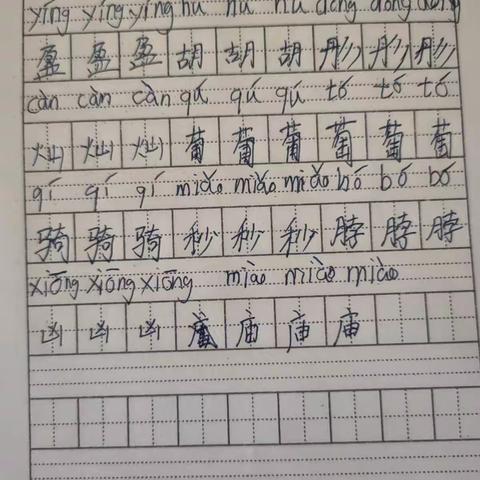 yíng yíng yíng hú hú hú
盈 盈 盈 胡 胡 胡
càn càn càn qú qú qú tó tó tó
灿 灿 灿 葡 葡 葡 萄 萄 萄
qí qí qí miǎo miǎo miǎo bó bó bó
骑 骑 骑 秒 秒 秒 脖 脖 脖
xiōng xiōng xiōng miào miào miào
凶 凶 凶 庙 庙 庙 庙